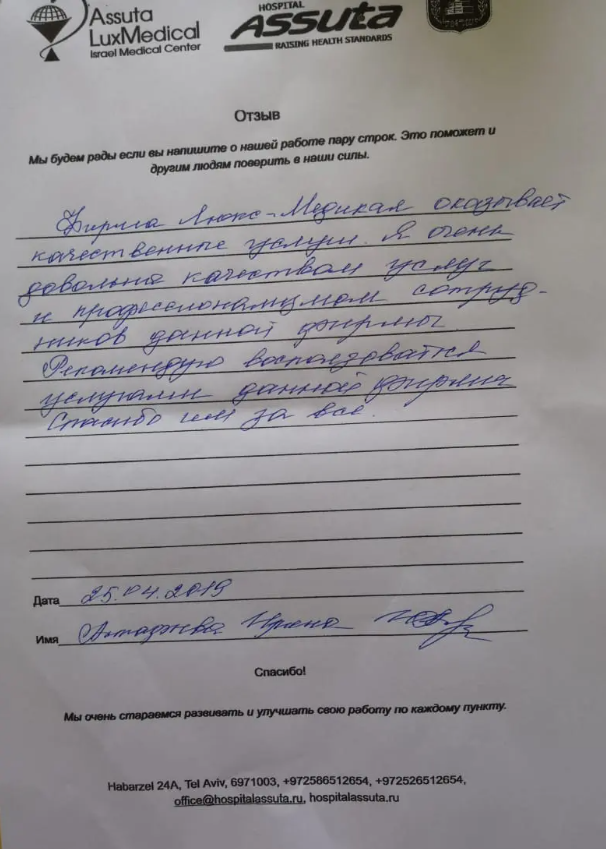 Assuta
LuxMedical
Israel Medical Center
HOSPITAL
ASSUTA
RAISING HEALTH STANDARDS
Отзыв
Мы будем рады если вы напишите о нашей работе пару строк. Это поможет и
другим людям поверить в наши силы.
Фирма Люкс-Медикал оказывает
качественные услуги. Я очень
довольна качеством услуг
и профессионализмом сотруд-
ников данной фирмы.
Рекомендую воспользоваться
услугами данной фирмы
Спасибо им за все.
Дата 25.04.2019
Имя Ирина
Спасибо!
Мы очень стараемся развивать и улучшать свою работу по каждому пункту.
Habarzel 24A, Tel Aviv, 6971003, +972586512654, +972526512654,
office@hospitalassuta.ru, hospitalassuta.ru